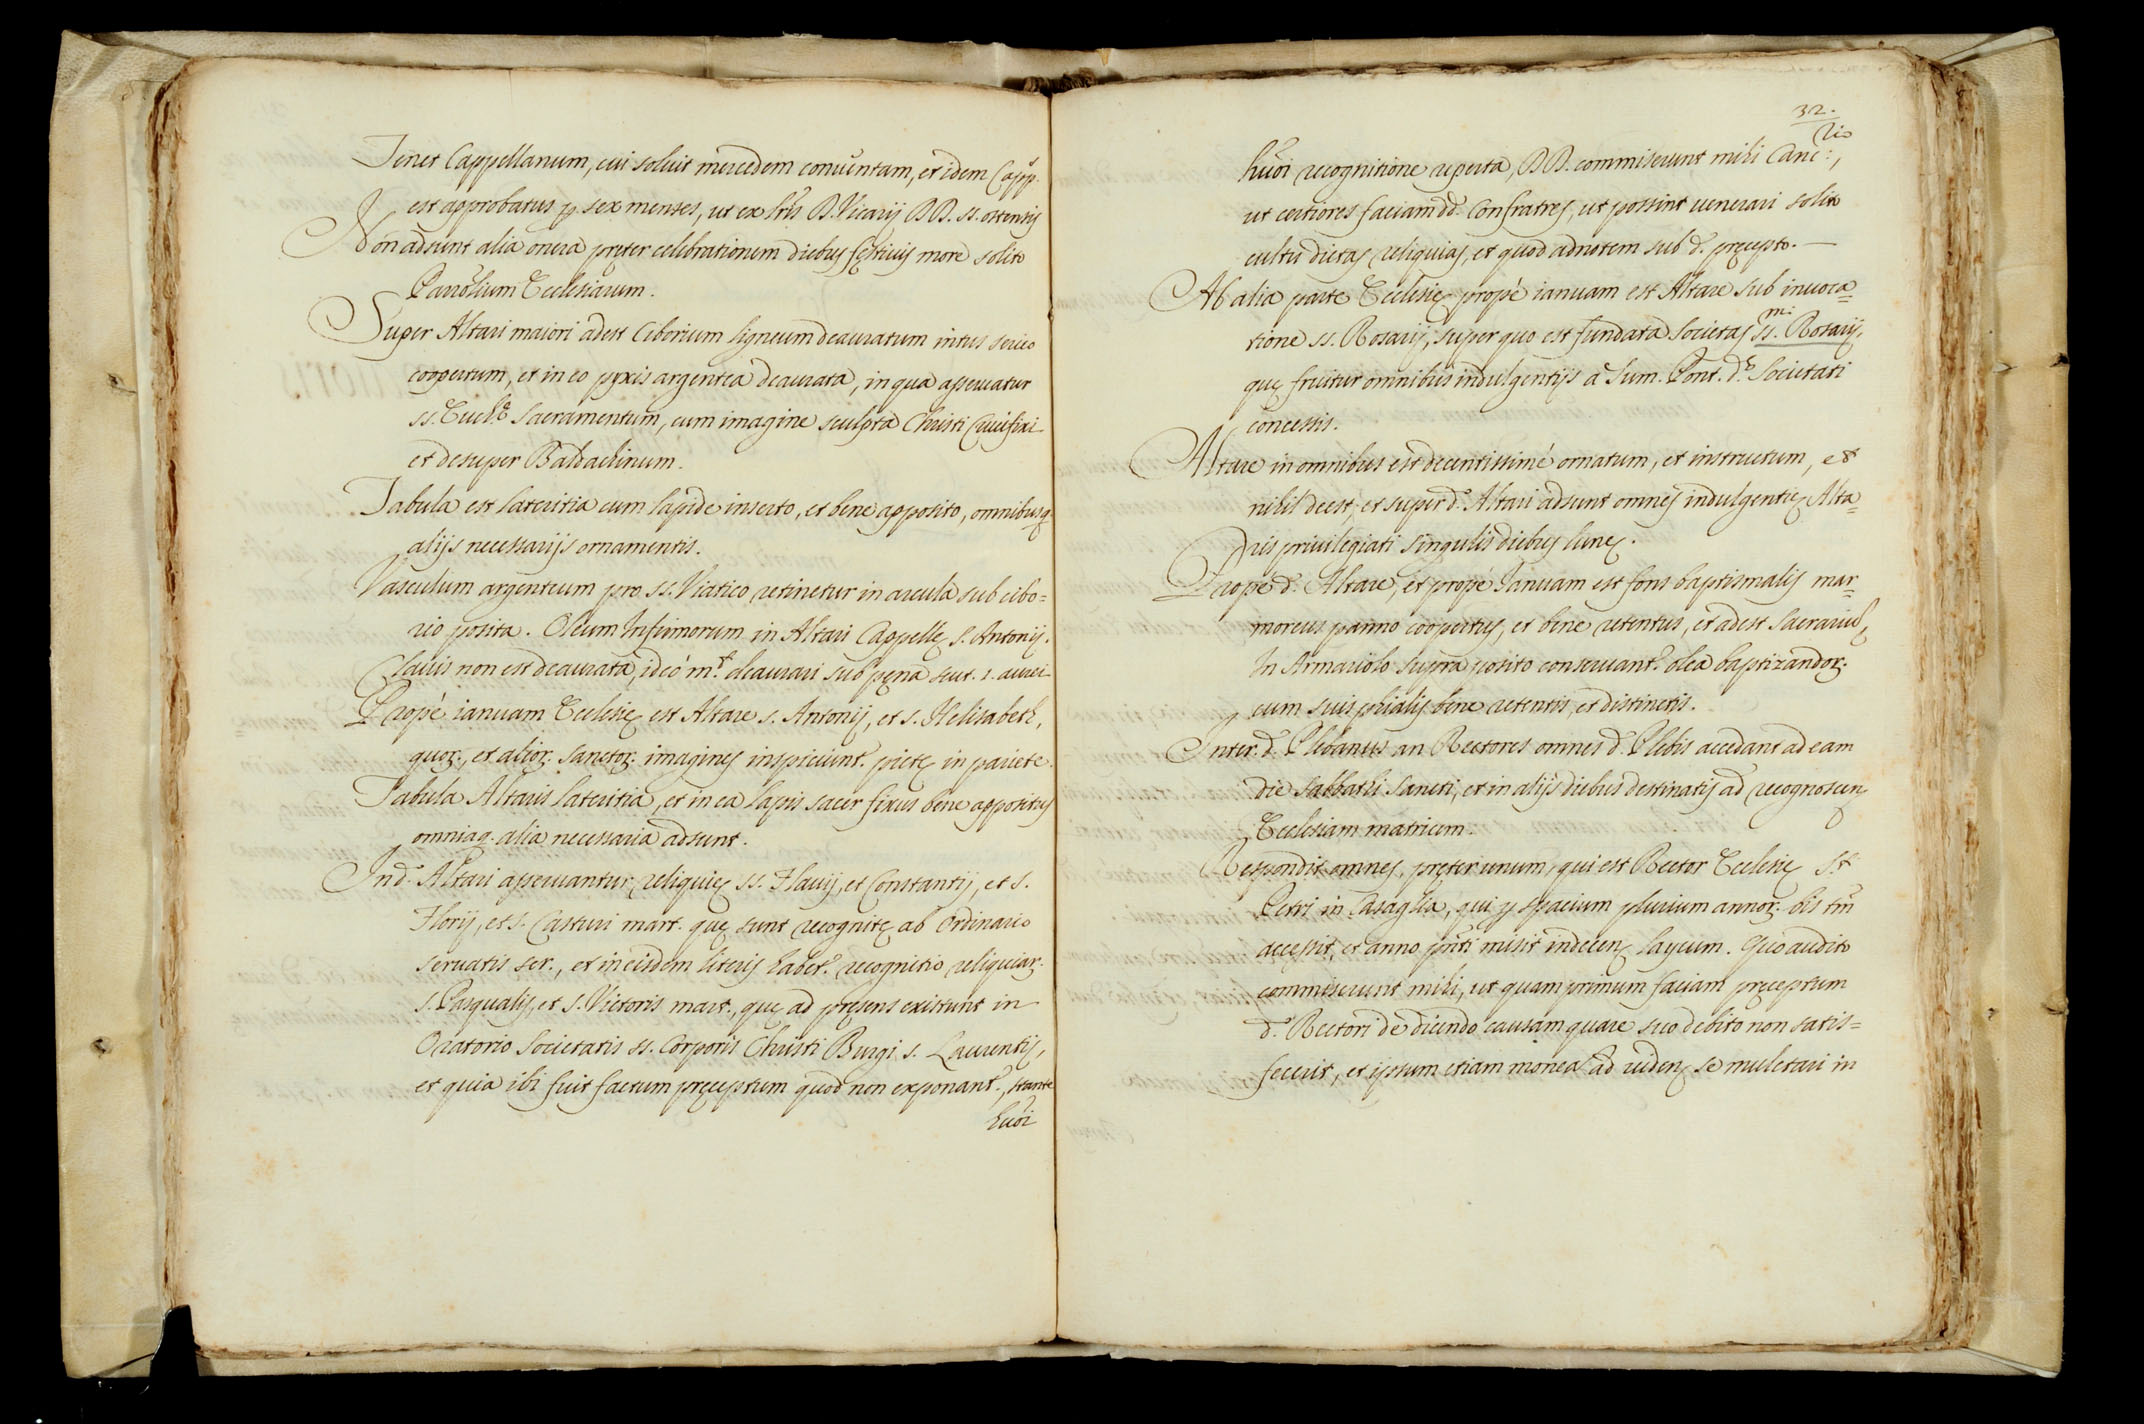 Tenet Cappellanum, cui soluit mercedem conuentam, et idem Capp.
est approbatus p sex menses, ut ex lris D. Vicarij DD. ss. ostensis
Non adsunt alia onera preter celebrationem diebus festiuis more solito
Parrolium Ecclesiarum.
Super Altari maiori adest Ciborium ligneum deauratum intus serico
coopertum, et in eo pyxis argentea deaurata, in qua asseruatur
ss. Euch.e Sacramentum, cum imagine sculpta Christi Crucifixi
et desuper Baldachinum.
Tabula est lateritia cum lapide inserto, et bene apposito, omnibusq
alijs necessarijs ornamentis.
Vasculum argenteum pro ss. Viatico retinetur in arcula sub cibo=
rio posita. Oleum Infirmorum in Altari Cappellę S. Antonij.
Clauis non est deaurata, ideò m.t deaurari sub pęna scut. 1. aurei
Propè ianuam Ecclesię est Altare s. Antonij, et s. Helisabeth,
quor., et alior. sanctor. imagines inspiciunt.r pictę in pariete.
Tabula Altaris lateritia, et in ea lapis sacer fixus bene appositus
omniaq. alia necessaria adsunt.
In d.o Altari asseruantur reliquię ss. Flauij, et Constantij, et s.
Florij, et s. Casturi mart. quę sunt recognitę ab Ordinario
seruatis ser., et in eisdem literis habet.r recognitio reliquiar.
s. Pasqualis, et s. Victoris mart., quę ad pręsens existunt in
Oratorio Societatis ss. Corporis Christi Burgi s. Laurentij,
et quia ibi fuit factum pręceptum quod non exponant.r, stante
huoi
32.
huoi recognitione reperta, DD. commiserunt mihi Canc:rio,
ut certiores faciam dd. Confratres, ut possint uenerari solito
cultu dictas reliquias, et quod adnotem sub d.o pręcepto.—
Ab alia parte Ecclesię propè ianuam est Altare sub inuoca=
tione ss. Rosarij, super quo est fundata Societas ss.m Rosarij,
quę fruitur omnibus indulgentijs a Sum. Pont. d.ę Societati
concessis.
Altare in omnibus est decentissimè ornatum, et instructum, et
nihil deest, et super d.o Altari adsunt omnes indulgentię Alta=
ris priuilegiati singulis diebus lunę.
Propè d.m Altare, et propè Ianuam est fons baptismalis mar=
moreus panno coopertus, et bene retentus, et adest Sacrariu.
In Armariolo supra posito conseruant.r olea baptizandor.
cum suis phialis bene retentis, et distinctis.
Inter. d. Plebanus an Rectores omnes d. Plebis accedant ad eam
die Sabbathi Sancti, et in alijs diebus destinatis ad recognoscen
Ecclesiam matricem.
Respondit omnes, pręter unum, qui est Rector Ecclesię S.ti
Petri in Casaglia, qui p spacium plurium annor. bis tm
accessit, et anno pnti misit indecen laycum. Quo audito
commiserunt mihi, ut quamprimum faciam pręceptum
d.o Rectori de dicendo causam quare suo debito non satis=
fecerit, et ipsum etiam monea ad uiden se mulctari in